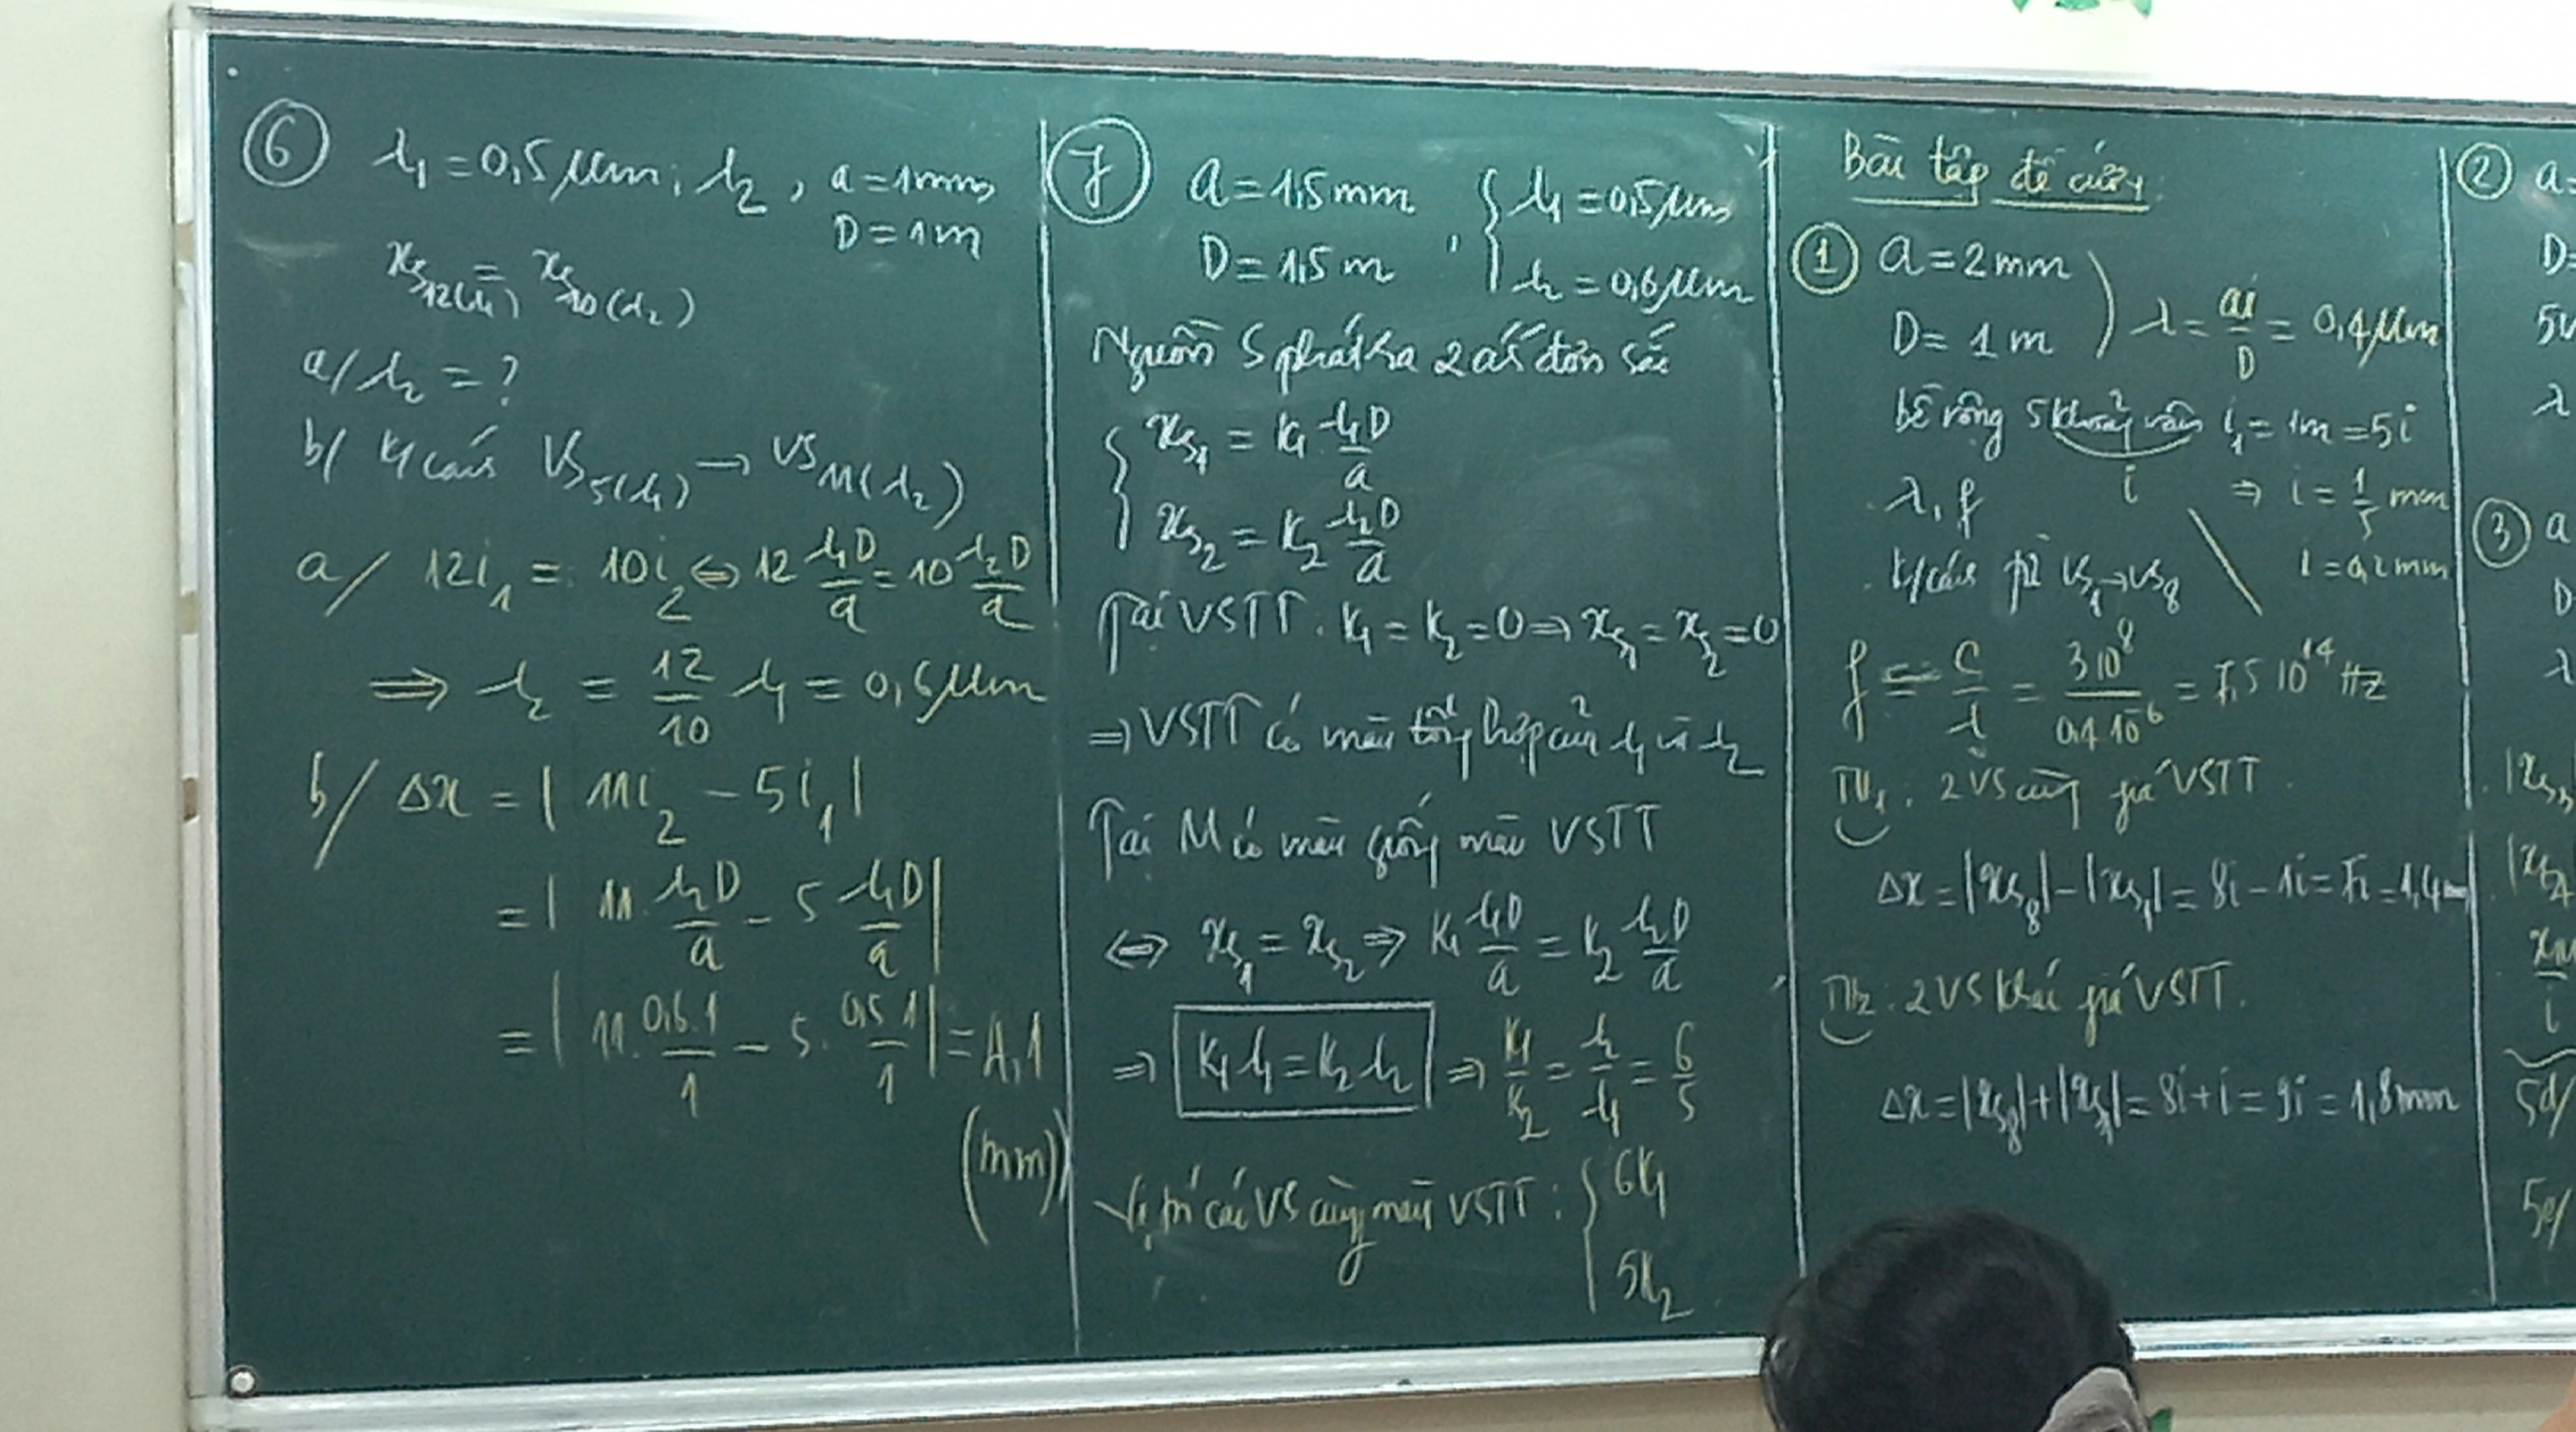 6 λ₁ = 0,5 μm ; λ₂ , a = 1mm,
D = 1m
x_S12(λ₁) = x_S10(λ₂)
a/ λ₂ = ?
b/ K/cách VS₅(λ₁) → VS₁₁(λ₂)
a/ 12i₁ = 10i₂ ⇔ 12 λ₁D/a = 10 λ₂D/a
⇒ λ₂ = 12/10 λ₁ = 0,6 μm
b/ Δx = | 11i₂ - 5i₁ |
= | 11. λ₂D/a - 5 λ₁D/a |
= | 11. 0,6.1/1 - 5. 0,5.1/1 | = 4,1
(mm)
7 a = 1,5 mm , { λ₁ = 0,5 μm
D = 1,5 m λ₂ = 0,6 μm
Nguồn S phát ra 2 as đơn sắc
{ x_S1 = K₁ λ₁D/a
x_S2 = K₂ λ₂D/a
Tại VSTT. K₁ = K₂ = 0 ⇒ x_S1 = x_S2 = 0
⇒ VSTT có màu tổng hợp của λ₁ và λ₂
Tại M có màu giống màu VSTT
⇔ x_S1 = x_S2 ⇒ K₁ λ₁D/a = K₂ λ₂D/a
⇒ K₁λ₁ = K₂λ₂ ⇒ K₁/K₂ = λ₂/λ₁ = 6/5
Vị trí các VS cùng màu VSTT : { 6K₁
5K₂
Bài tập đề cương
1 a = 2 mm
D = 1 m ) λ = ai/D = 0,4 μm
bề rộng 5 khoảng vân i₁ = 1m = 5i
λ, f i ⇒ i = 1/5 mm
K/cách từ VS₁ → VS₈ i = 0,2 mm
f = c/λ = 3.10⁸/0,4.10⁻⁶ = 7,5 10¹⁴ Hz
TH₁ : 2 VS cùng phía VSTT.
Δx = |x_S8| - |x_S1| = 8i - 1i = 7i = 1,4
TH₂ : 2 VS khác phía VSTT.
Δx = |x_S8| + |x_S1| = 8i + i = 9i = 1,8 mm
2 a =
D =
5v
λ
3 a
D
λ
5d/
5e/